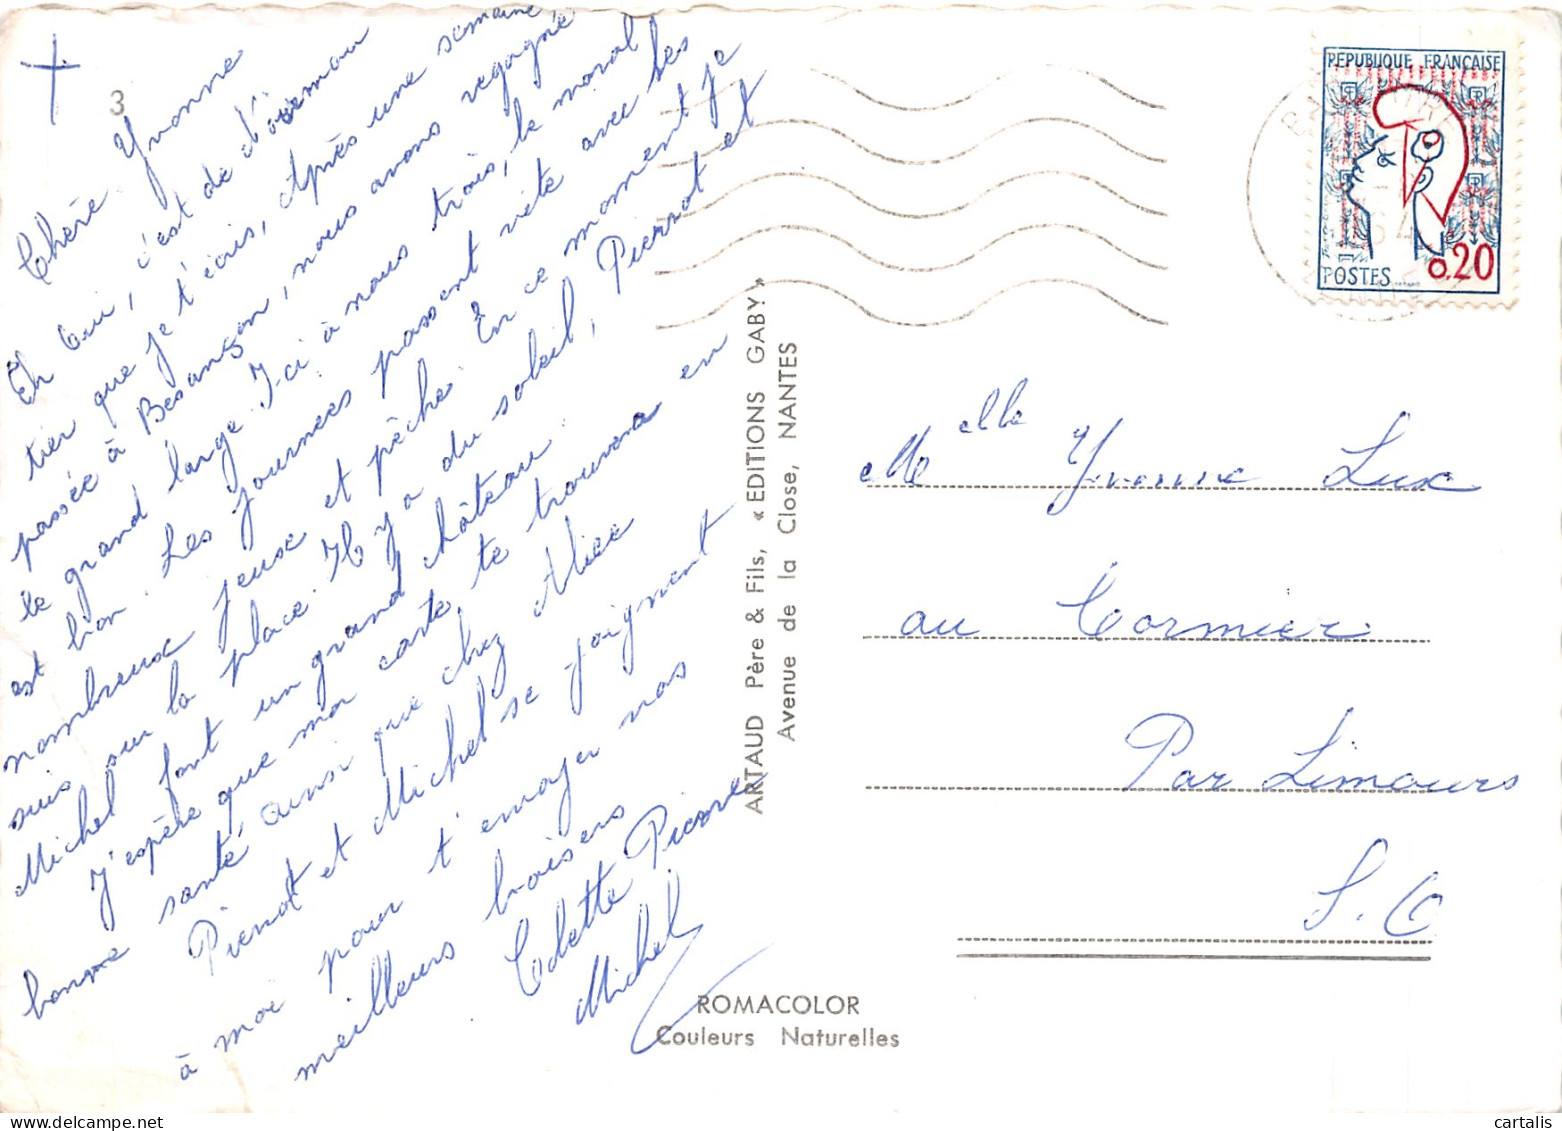 3
Chère Yvonne
Eh oui, c'est de
tier que je t'écris, Après une semaine
passée à Besançon, nous avons regagné
le grand large. I-ci à nous trois, le moral
est bon. Les journées passent vite avec les
nombreux jeux et pêche. En ce moment je
suis sur la place. Il y a du soleil, Pierrot et
Michel font un grand château.
J'espère que ma carte te trouvera en
bonne santé ainsi que chez Alice
Pierrot et Michel se joignent
à moi pour t'envoyer nos
meilleurs baisers
Odette Pierrot
Michel
ARTAUD Père & Fils, « EDITIONS GABY »
Avenue de la Close, NANTES
ROMACOLOR
Couleurs Naturelles
REPUBLIQUE FRANÇAISE
POSTES
0.20
Melle Yvonne Lux
au Cormier
Par Limours
S. O
cartalis